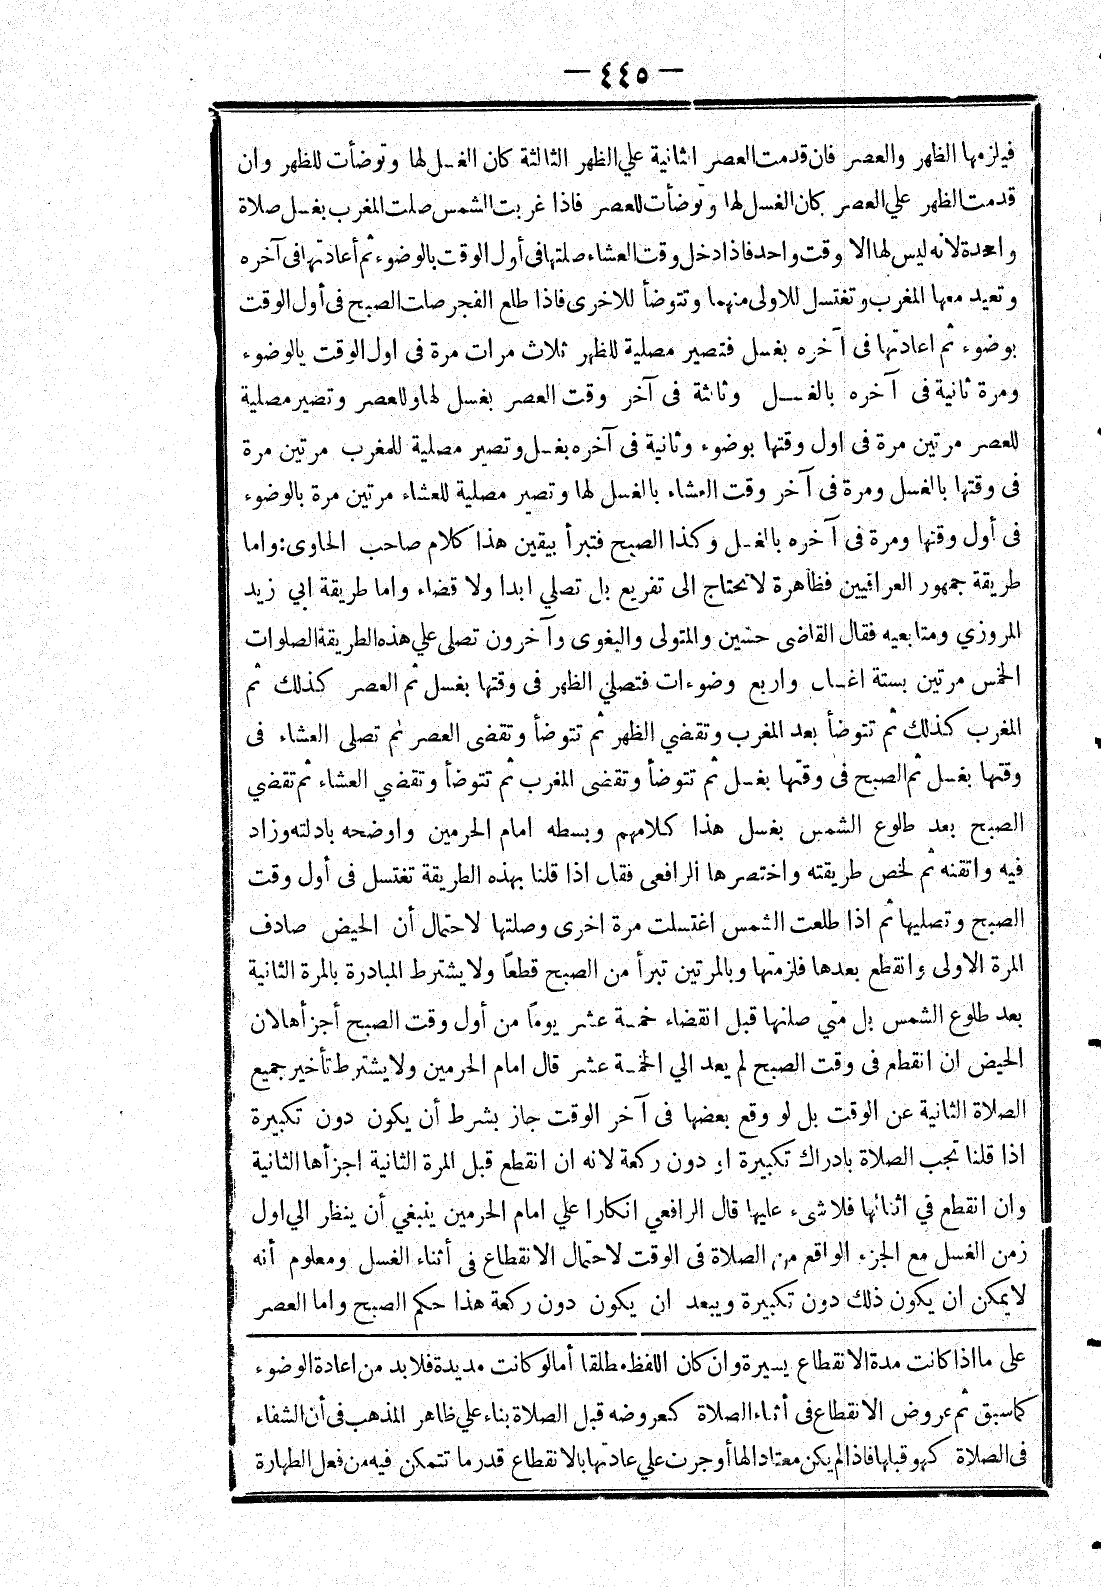 — ٤٤٥ —
فيلزمها الظهر والعصر فان قدمت العصر الثانية علي الظهر الثالثة كان الغسل لها وتوضأت للظهر وان
قدمت الظهر علي العصر كان الغسل لها وتوضأت للعصر فاذا غربت الشمس صلت المغرب بغسل صلاة
واحدة لانه ليس لها الا وقت واحد فاذا دخل وقت العشاء صلتها فى أول الوقت بالوضوء ثم أعادتها فى آخره
وتعيد معها المغرب وتغتسل للاولى منهما وتتوضأ للاخرى فاذا طلع الفجر صلت الصبح فى أول الوقت
بوضوء ثم اعادتها فى آخره بغسل فتصير مصلية للظهر ثلاث مرات مرة فى اول الوقت بالوضوء
ومرة ثانية فى آخره بالغسل وثالثة فى آخر وقت العصر بغسل لها وللعصر وتصير مصلية
للعصر مرتين مرة فى اول وقتها بوضوء وثانية فى آخره بغسل وتصير مصلية للمغرب مرتين مرة
فى وقتها بالغسل ومرة فى آخر وقت العشاء بالغسل لها وتصير مصلية للعشاء مرتين مرة بالوضوء
فى أول وقتها ومرة فى آخره بالغسل وكذا الصبح فتبرأ بيقين هذا كلام صاحب الحاوى: واما
طريقة جمهور العراقيين فظاهرة لا تحتاج الى تفريع بل تصلي ابدا ولا قضاء واما طريقة ابي زيد
المروزي ومتابعيه فقال القاضى حسين والمتولى والبغوى وآخرون تصلى علي هذه الطريقة الصلوات
الخمس مرتين بستة اغسال واربع وضوءات فتصلي الظهر فى وقتها بغسل ثم العصر كذلك ثم
المغرب كذلك ثم تتوضأ بعد المغرب وتقضي الظهر ثم تتوضأ وتقضى العصر ثم تصلى العشاء فى
وقتها بغسل ثم الصبح فى وقتها بغسل ثم تتوضأ وتقضى المغرب ثم تتوضأ وتقضي العشاء ثم تقضي
الصبح بعد طلوع الشمس بغسل هذا كلامهم وبسطه امام الحرمين واوضحه بادلته وزاد
فيه واتقنه ثم لخص طريقته واختصرها الرافعى فقال اذا قلنا بهذه الطريقة تغتسل فى أول وقت
الصبح وتصليها ثم اذا طلعت الشمس اغتسلت مرة اخرى وصلتها لاحتمال أن الحيض صادف
المرة الاولى وانقطع بعدها فلزمتها وبالمرتين تبرأ من الصبح قطعًا ولا يشترط المبادرة بالمرة الثانية
بعد طلوع الشمس بل متي صلتها قبل انقضاء خمسة عشر يومًا من أول وقت الصبح أجزأها لان
الحيض ان انقطع فى وقت الصبح لم يعد الي الخمسة عشر قال امام الحرمين ولا يشترط تأخير جميع
الصلاة الثانية عن الوقت بل لو وقع بعضها فى آخر الوقت جاز بشرط أن يكون دون تكبيرة
اذا قلنا تجب الصلاة بادراك تكبيرة او دون ركعة لانه ان انقطع قبل المرة الثانية اجزأها الثانية
وان انقطع في اثنائها فلا شىء عليها قال الرافعي انكارا علي امام الحرمين ينبغي أن ينظر الي اول
زمن الغسل مع الجزء الواقع من الصلاة فى الوقت لاحتمال الانقطاع فى أثناء الغسل ومعلوم أنه
لا يمكن ان يكون ذلك دون تكبيرة ويبعد ان يكون دون ركعة هذا حكم الصبح واما العصر
على ما اذا كانت مدة الانقطاع يسيرة وان كان اللفظ مطلقا أما لو كانت مديدة فلا بد من اعادة الوضوء
كما سبق ثم عروض الانقطاع فى أثناء الصلاة كعروضه قبل الصلاة بناء علي ظاهر المذهب فى أن الشفاء
فى الصلاة كهو قبلها فاذا لم يكن معتادا لها أو جرت علي عادتها بالانقطاع قدر ما تتمكن فيه من فعل الطهارة